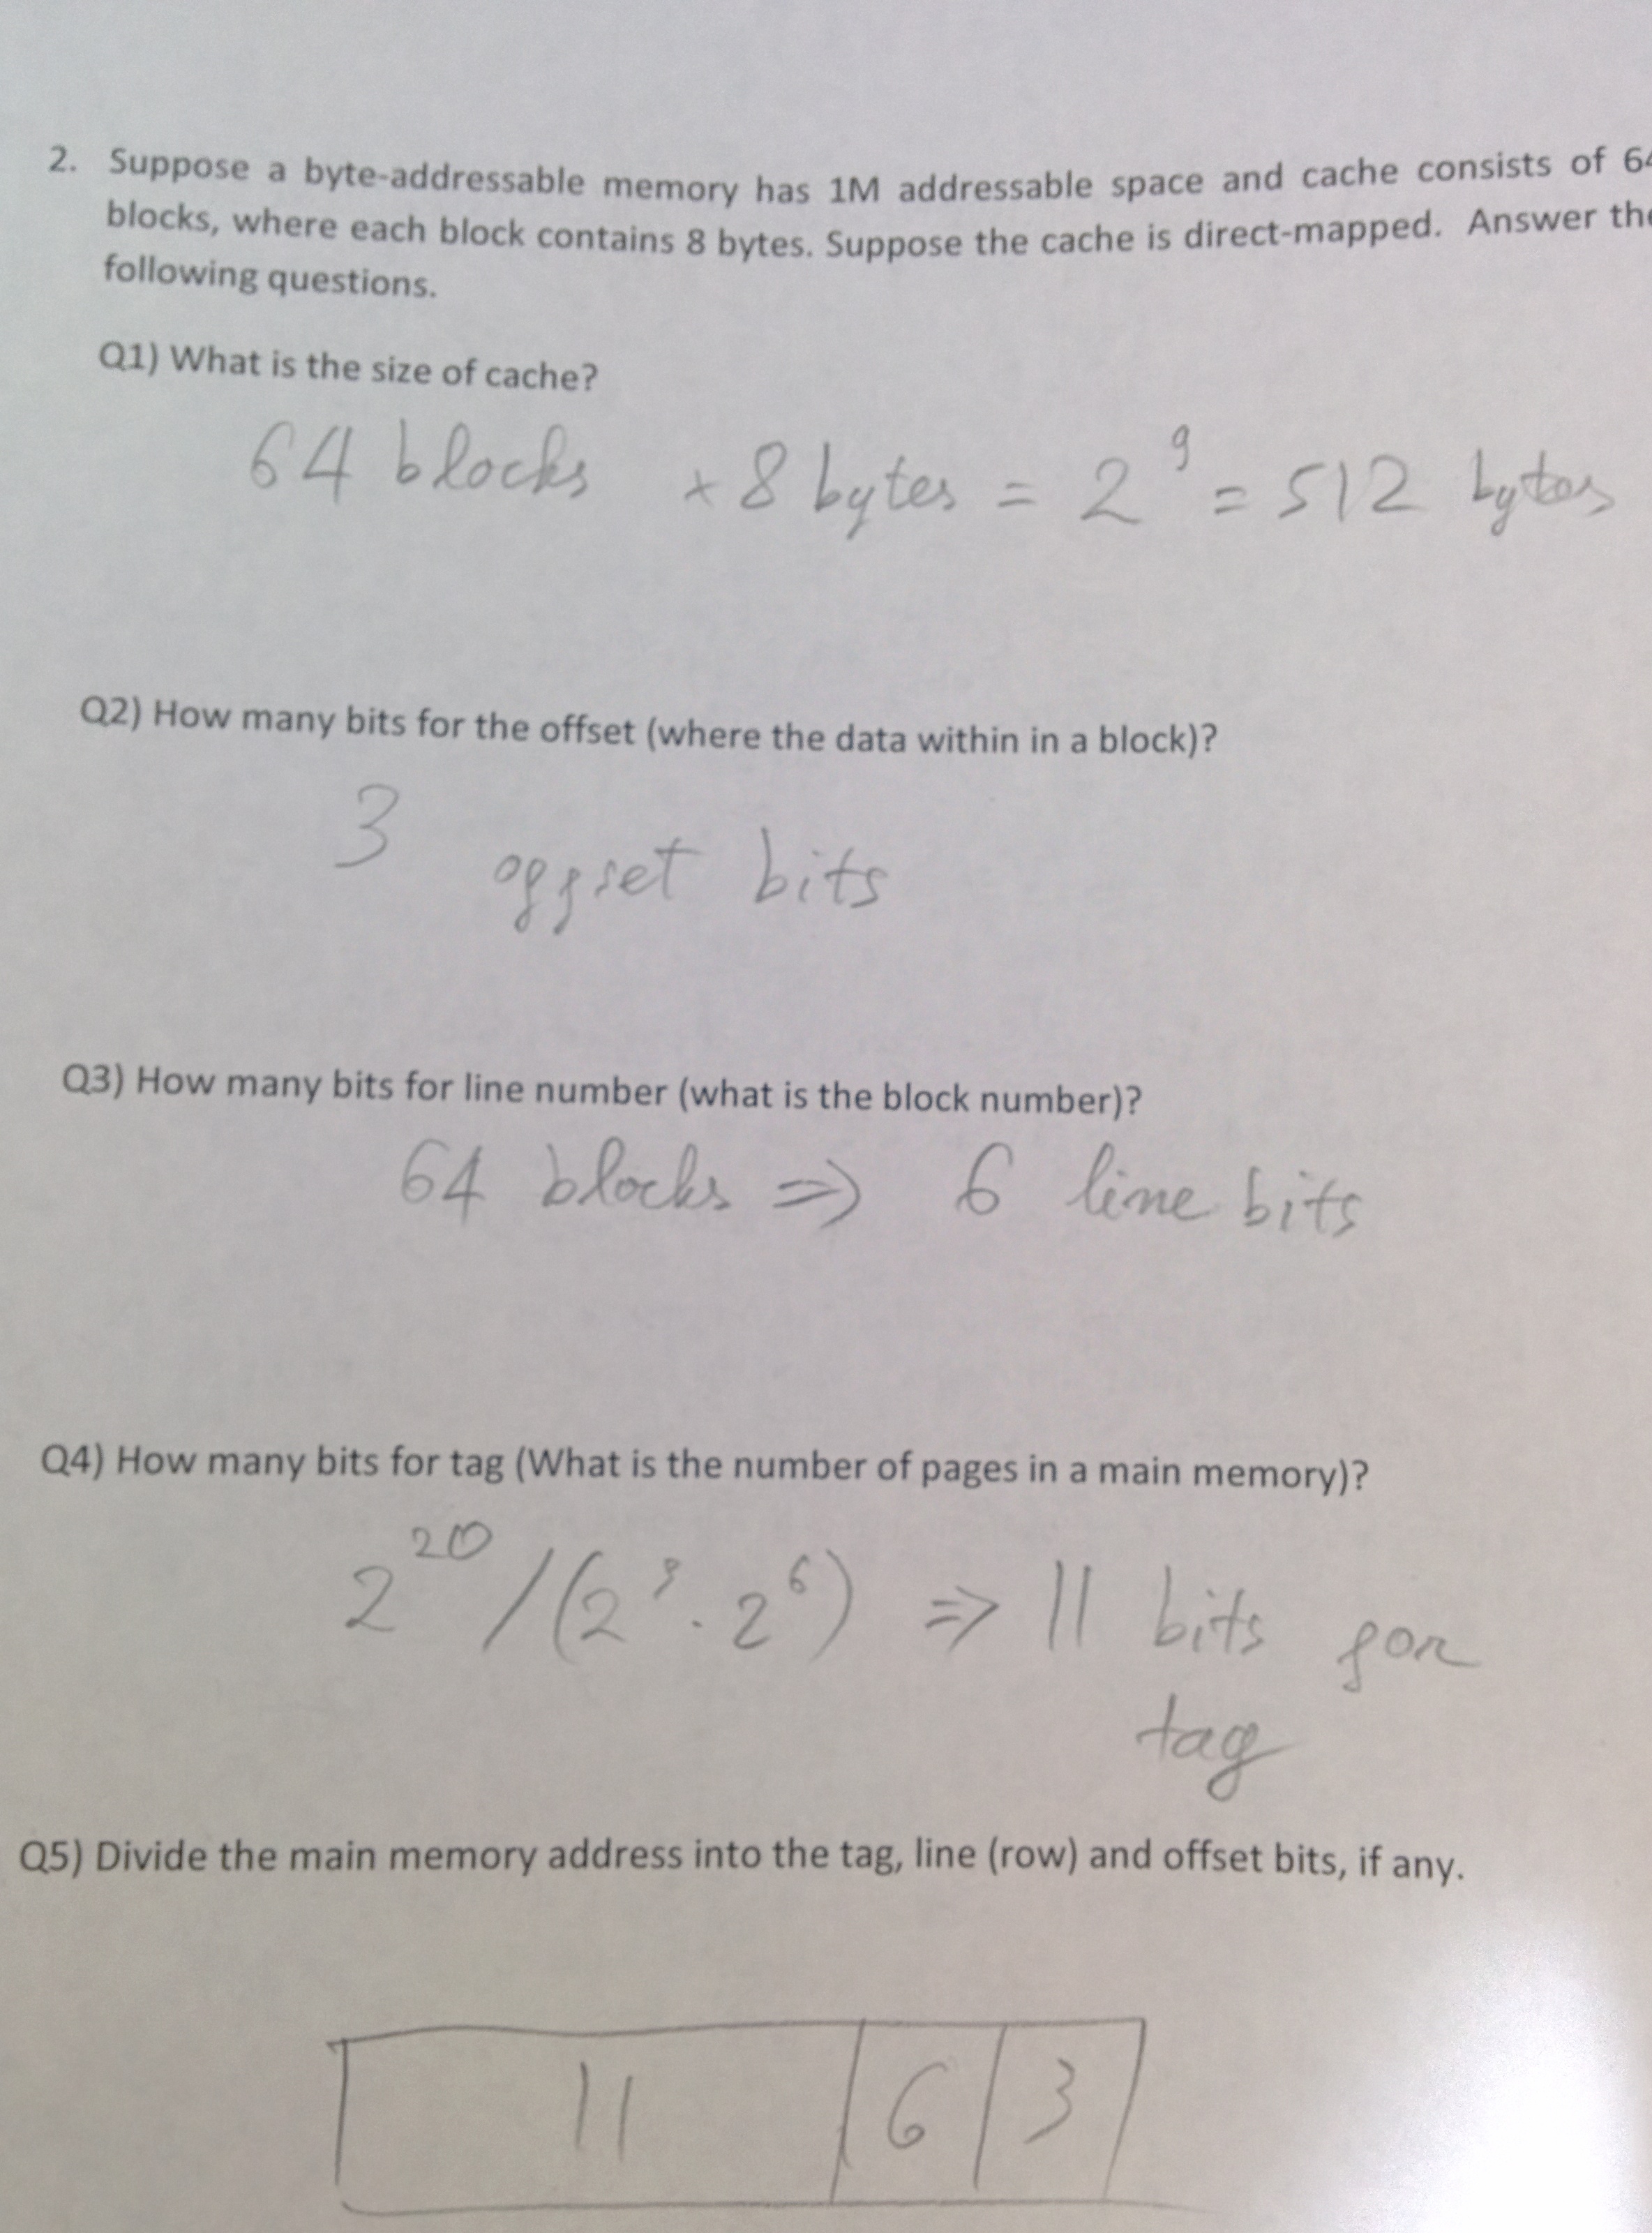 2. Suppose a byte-addressable memory has 1M addressable space and cache consists of 64
blocks, where each block contains 8 bytes. Suppose the cache is direct-mapped. Answer the
following questions.
Q1) What is the size of cache?
64 blocks × 8 bytes = 2⁹ = 512 bytes
Q2) How many bits for the offset (where the data within in a block)?
3 offset bits
Q3) How many bits for line number (what is the block number)?
64 blocks => 6 line bits
Q4) How many bits for tag (What is the number of pages in a main memory)?
2²⁰/(2³·2⁶) => 11 bits for
tag
Q5) Divide the main memory address into the tag, line (row) and offset bits, if any.
11 6 3